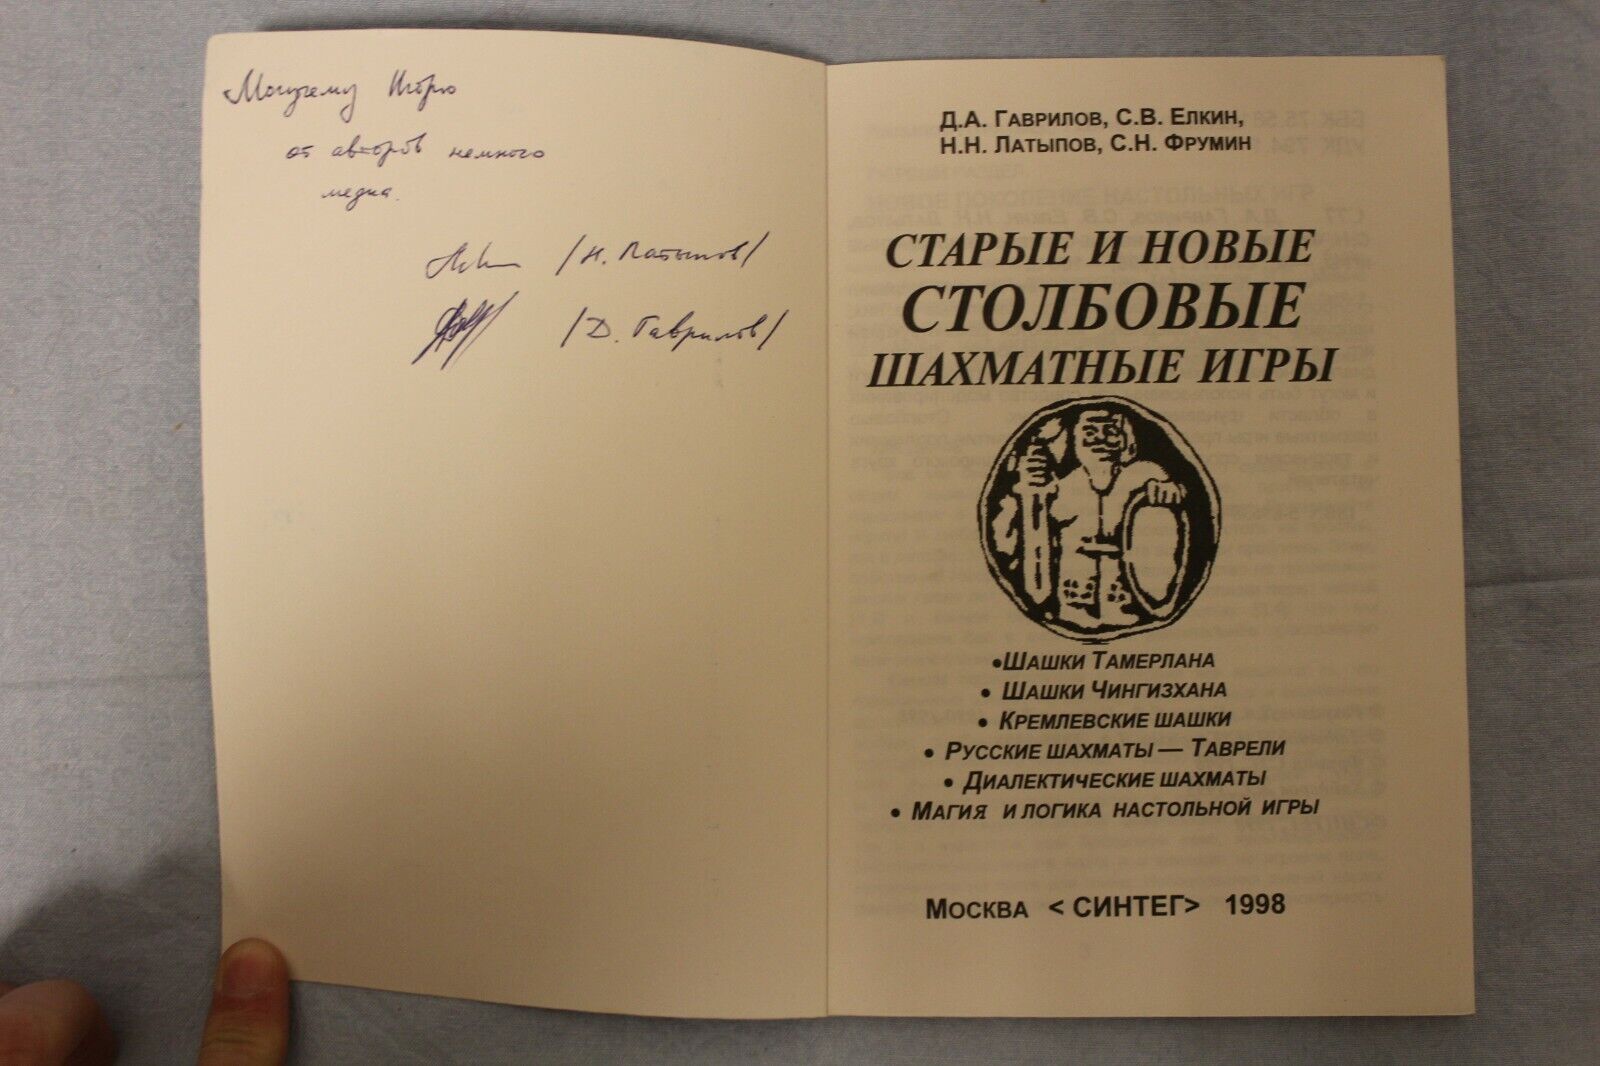 Могучему Игорю
от авторов немного
медка.
/Н. Латыпов/
/Д. Гаврилов/
Д.А. ГАВРИЛОВ, С.В. ЕЛКИН,
Н.Н. ЛАТЫПОВ, С.Н. ФРУМИН
СТАРЫЕ И НОВЫЕ
СТОЛБОВЫЕ
ШАХМАТНЫЕ ИГРЫ
•ШАШКИ ТАМЕРЛАНА
• ШАШКИ ЧИНГИЗХАНА
• КРЕМЛЕВСКИЕ ШАШКИ
• РУССКИЕ ШАХМАТЫ — ТАВРЕЛИ
• ДИАЛЕКТИЧЕСКИЕ ШАХМАТЫ
• МАГИЯ И ЛОГИКА НАСТОЛЬНОЙ ИГРЫ
МОСКВА < СИНТЕГ> 1998